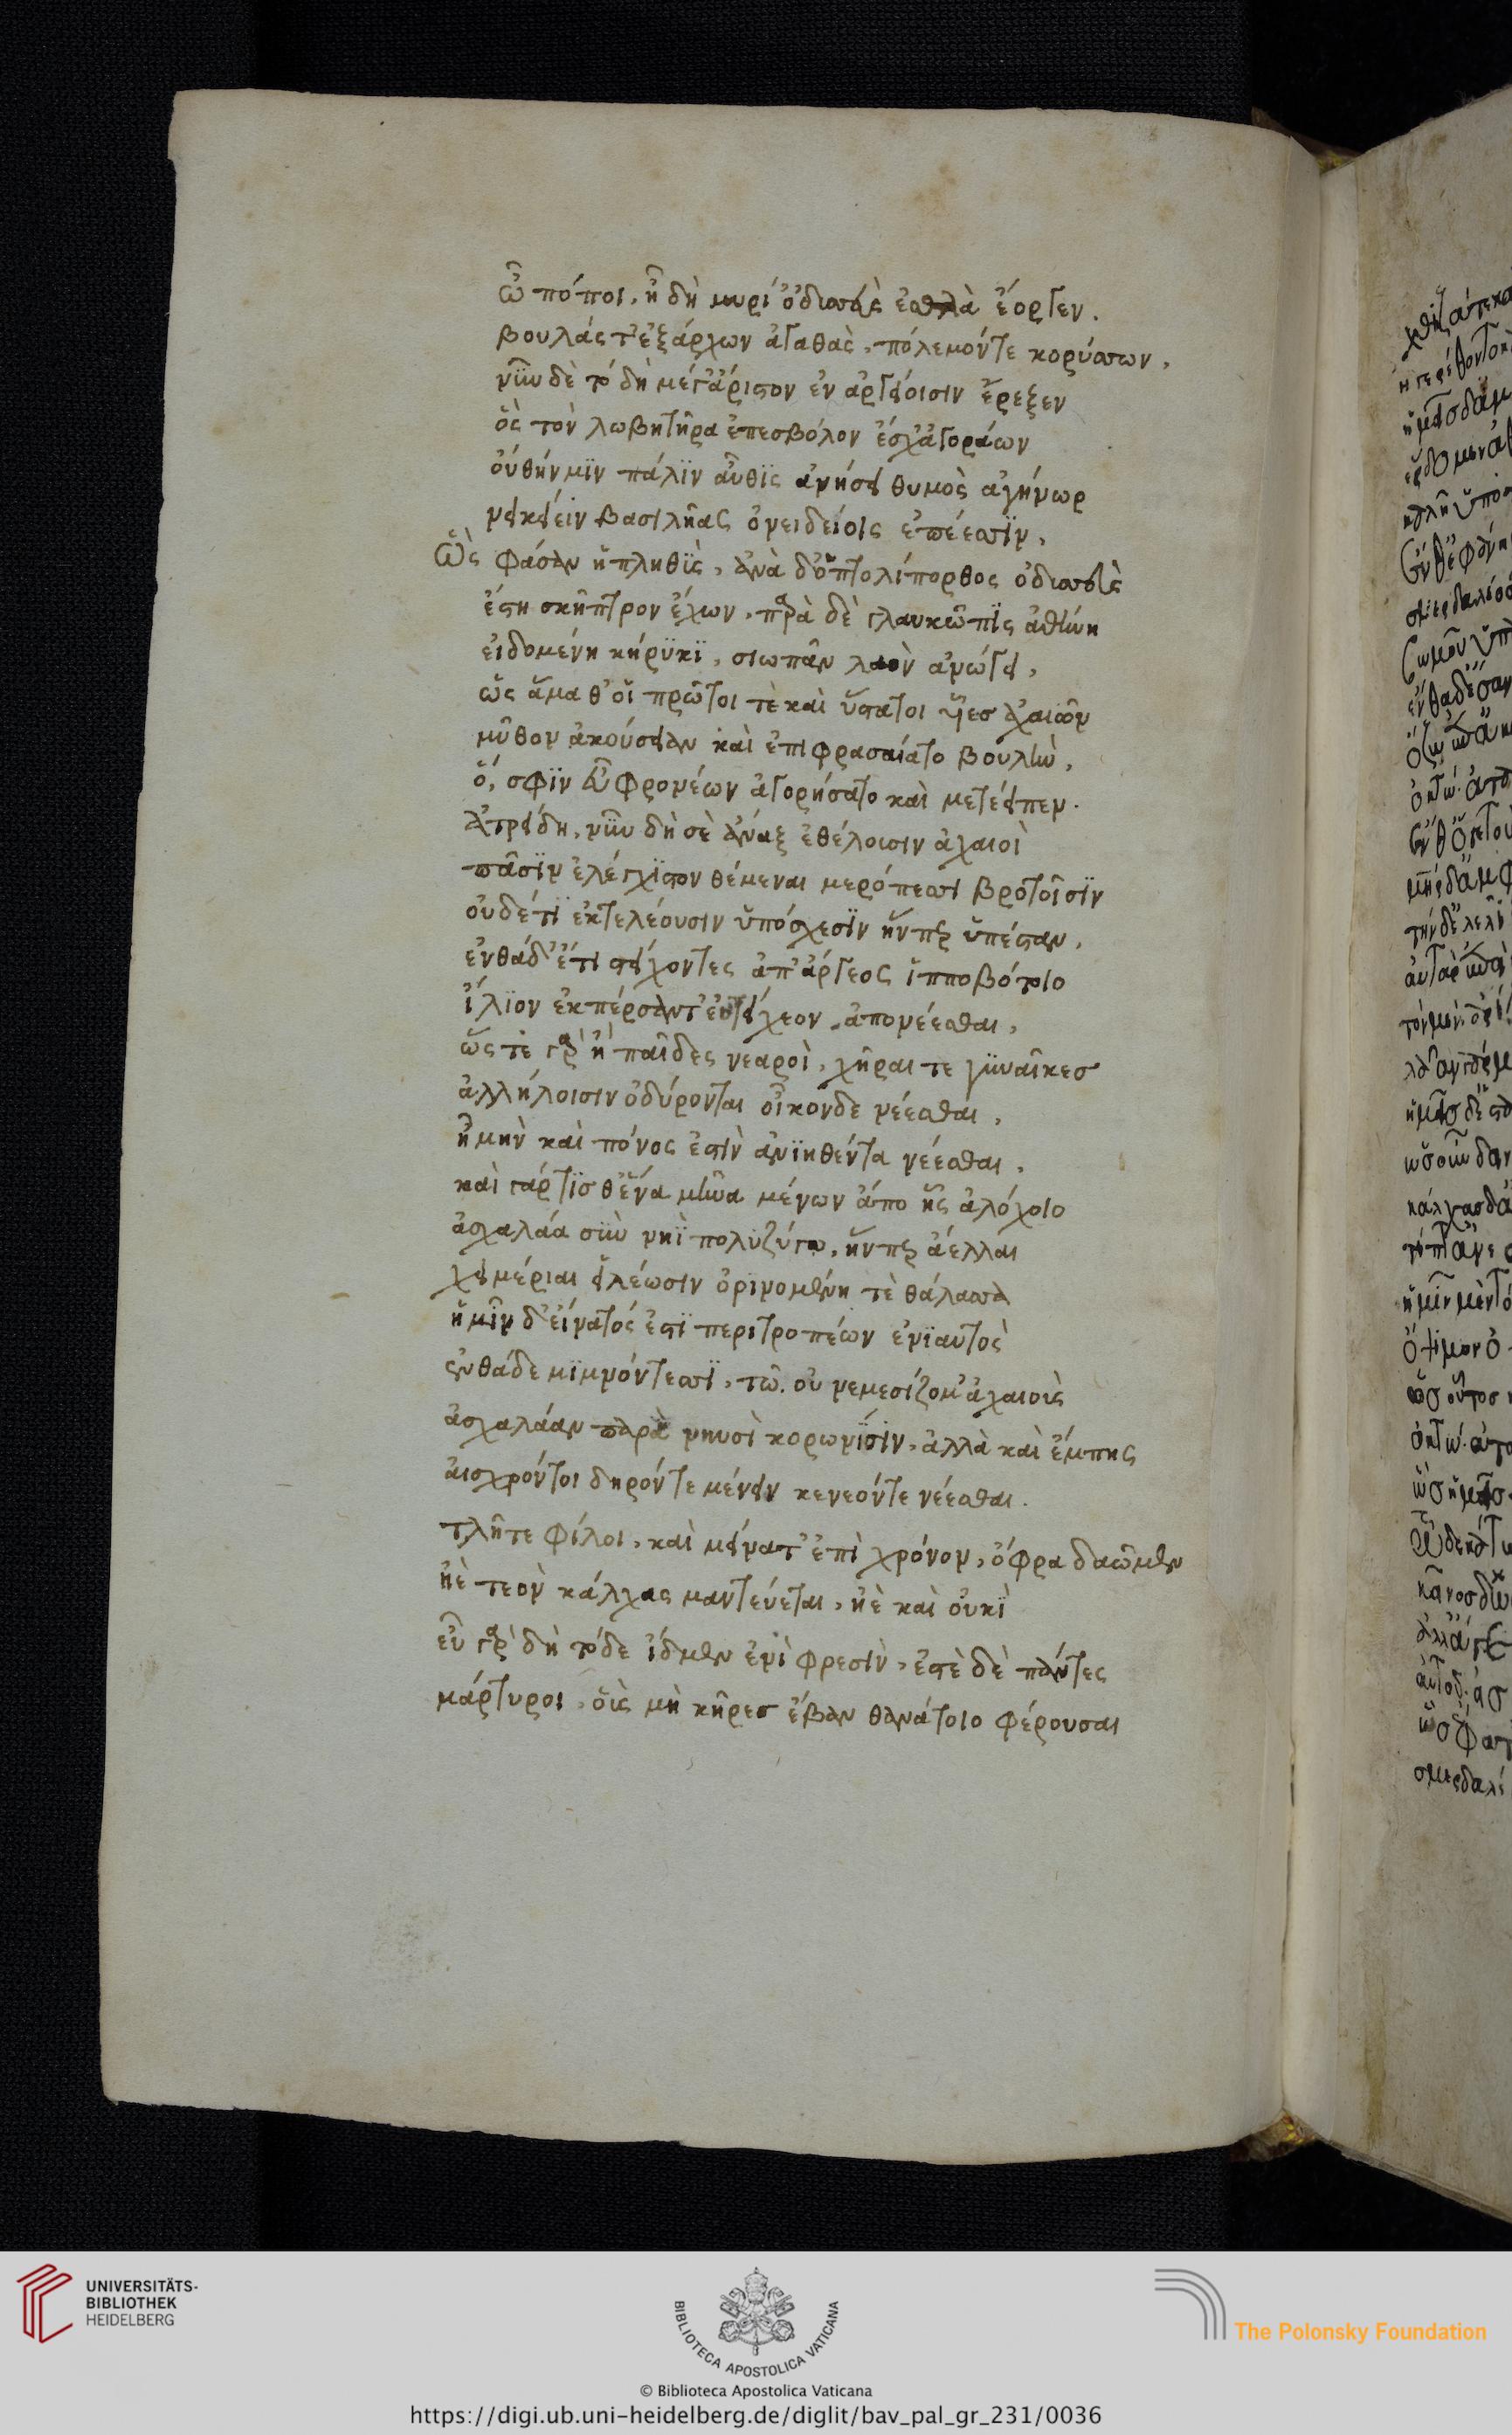 ὢ πόποι, ἦ δὴ μυρί ὀδυσσεὺς ἐσθλὰ ἔοργεν.
βουλάς τ' ἐξάρχων ἀγαθὰς, πόλεμόντε κορύσσων,
νῦν δὲ τό δὴ μέγ' ἄριστον ἐν ἀργείοισιν ἔρεξεν
ὃς τὸν λωβητῆρα ἐπεσβόλον ἔσχ' ἀγοράων
οὔθήν μϊν πάλϊν αὖθϊς ἀνήσει θυμὸς ἀγήνωρ
νεικείειν βασιλῆας ὀνειδείοις ἐπέεσσϊν,
Ὣς φάσαν ἡ πληθῒς, ἀνὰ δ' ὁ πτολίπορθος ὀδυσσεὺς
ἔστη σκῆπτρον ἔχων, παρὰ δὲ γλαυκῶπϊς ἀθήνη
εἰδομένη κήρϋκϊ, σιωπᾶν λαὸν ἀνώγει,
ὥς ἅμα θ' οἵ πρῶτοι τὲ καὶ ὕστατοι υἷες ἀχαιῶν
μῦθον ἀκούσειαν καὶ ἐπιφρασαίατο βουλὴν,
ὅ, σφϊν ἐϋφρονέων ἀγορήσατο καὶ μετέειπεν.
Ἀτρείδη, νῦν δὴ σὲ ἄναξ ἐθέλουσιν ἀχαιοὶ
πᾶσϊν ἐλέγχϊστον θέμεναι μερόπεσσι βροτοῖσϊν
οὐδέτϊ ἐκτελέουσιν ὑπόσχεσϊν ἥνπερ ὑπέσταν,
ἐνθάδ' ἔτι στείχοντες ἀπ' ἄργεος ἱπποβότοιο
ἴλϊον ἐκπέρσαντ' εὐτείχεον ἀπονέεσθαι,
ὥς τὲ γὰρ ἢ παῖδες νεαροὶ, χῆραι τε γυναῖκες
ἀλλήλοισιν ὀδύρονται οἶκονδε νέεσθαι,
ἦ μὴν καὶ πόνος ἐστὶν ἀνϊηθέντα νέεσθαι,
καὶ γάρ τϊς θ' ἕνα μῆνα μένων ἄπο ἧς ἀλόχοιο
ἀσχαλάα σὺν νηῒ πολυζύγω, ἥνπερ ἄελλαι
χειμέριαι εἰλέωσιν ὀρϊνομένη τὲ θάλασσα
ἡμῖν δ' εἴνατός ἐστϊ περιτροπέων ἐνϊαυτὸς
ἐνθάδε μϊμνόντεσσϊ, τῶ. οὐ νεμεσίζομ' ἀχαιοὺς
ἀσχαλάαν παρὰ νηυσὶ κορωνίσϊν, ἀλλὰ καὶ ἔμπης
αἰσχρόντοι δηρόντε μένειν κενεόντε νέεσθαι.
τλῆτε φίλοι, καὶ μείνατ' ἐπὶ χρόνον, ὄφρα δαῶμεν
ἢὲ τεὸν κάλχας μαντεύεται, ἠὲ καὶ οὐκῒ
εὖ γὰρ δὴ τόδε ἴδμεν ἐνὶ φρεσὶν, ἐστὲ δὲ πάντες
μάρτυροι, οὓς μὴ κῆρες ἔβαν θανάτοιο φέρουσαι
UNIVERSITÄTS-
BIBLIOTHEK
HEIDELBERG
BIBLIOTECA APOSTOLICA VATICANA
The Polonsky Foundation
© Biblioteca Apostolica Vaticana
https://digi.ub.uni-heidelberg.de/diglit/bav_pal_gr_231/0036